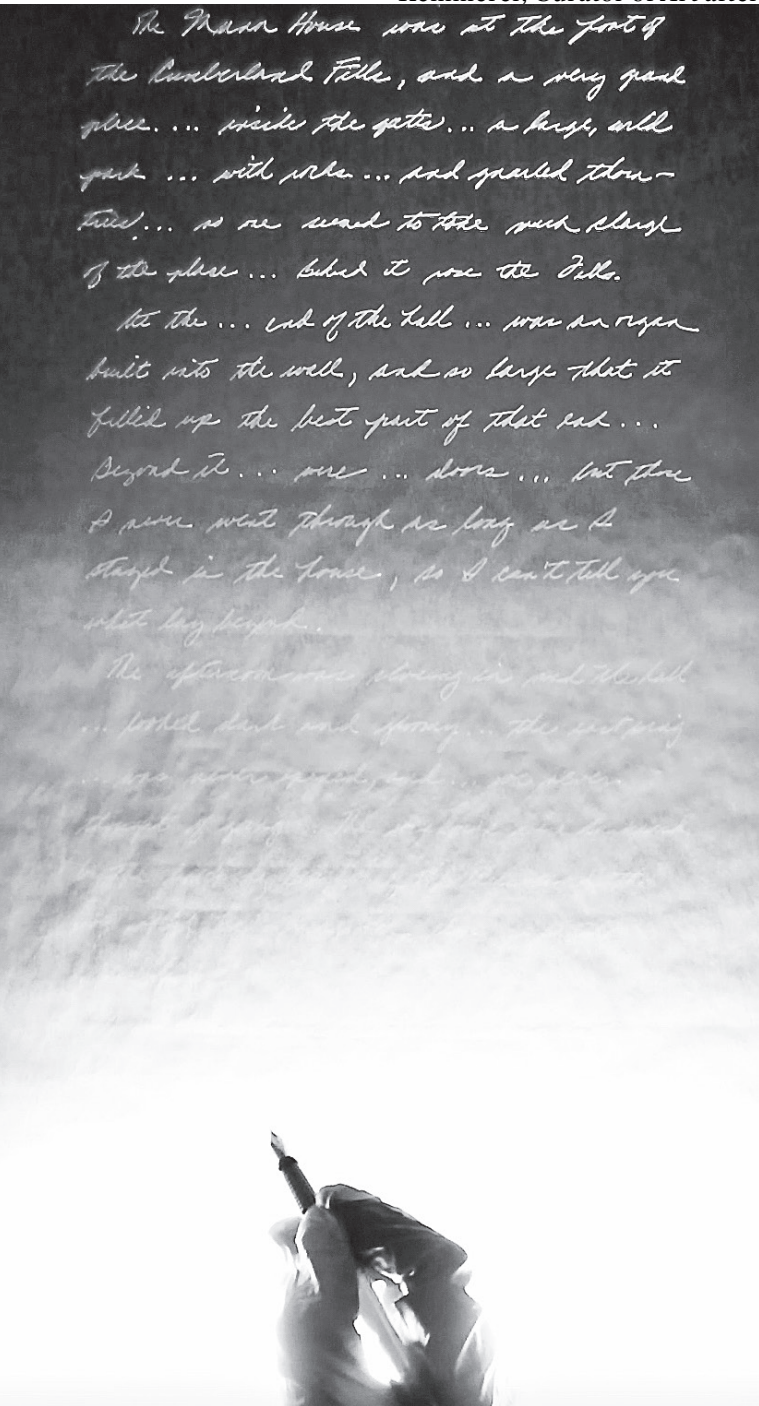 Kemmerer, Curator of Art after
The Manor House was at the foot of
the Cumberland Fells, and a very grand
place.... inside the gates... a large, wild
park ... with rocks ... and gnarled thorn-
trees... no one seemed to take much charge
of the place ... behind it rose the Fells.
At the ... end of the hall ... was an organ
built into the wall, and so large that it
filled up the best part of that end...
Beyond it... were ... doors ... but those
I never went through as long as I
stayed in the house, so I can't tell you
what lay beyond.
The afternoon was closing in and the hall
... looked dark and gloomy... the east wing
... was never opened and ...